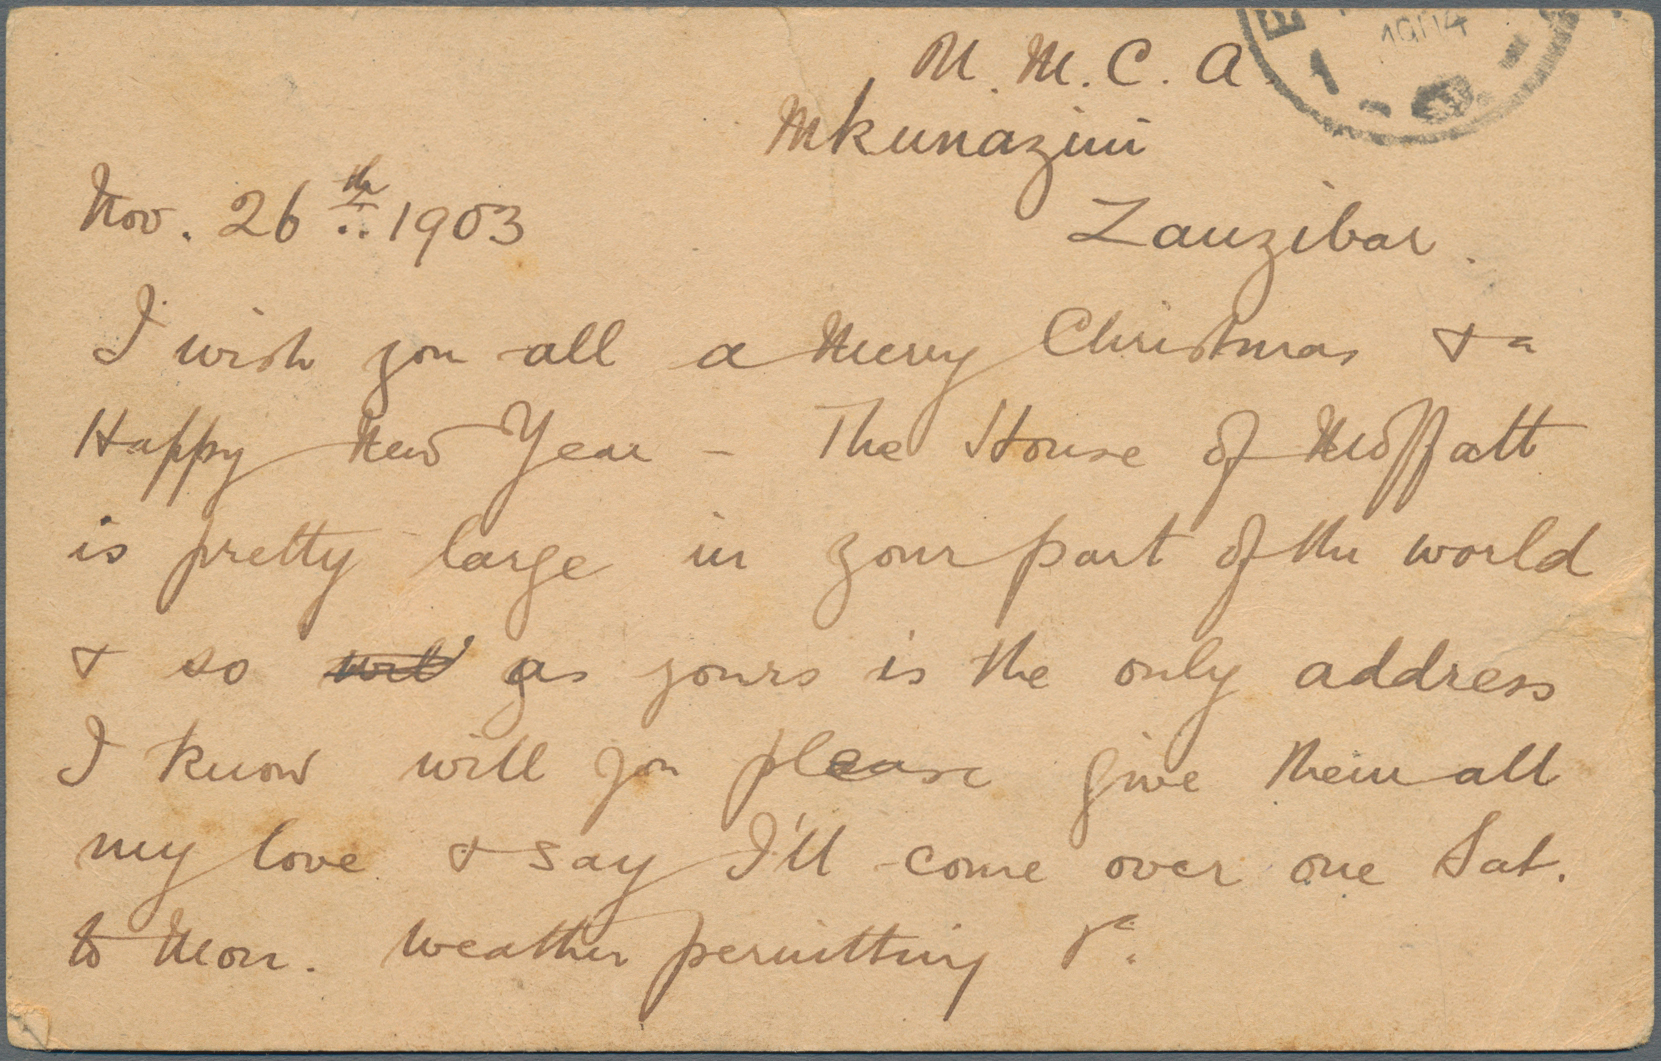 1904
U. M. C. A
Mkunazini
Nov. 26th 1903
Zanzibar.
I wish you all a Merry Christmas & a
Happy New Year - The House of Moffatt
is pretty large in your part of the world
& so as yours is the only address
I know will you please give them all
my love & say I'll come over one Sat.
to Mon. weather permitting